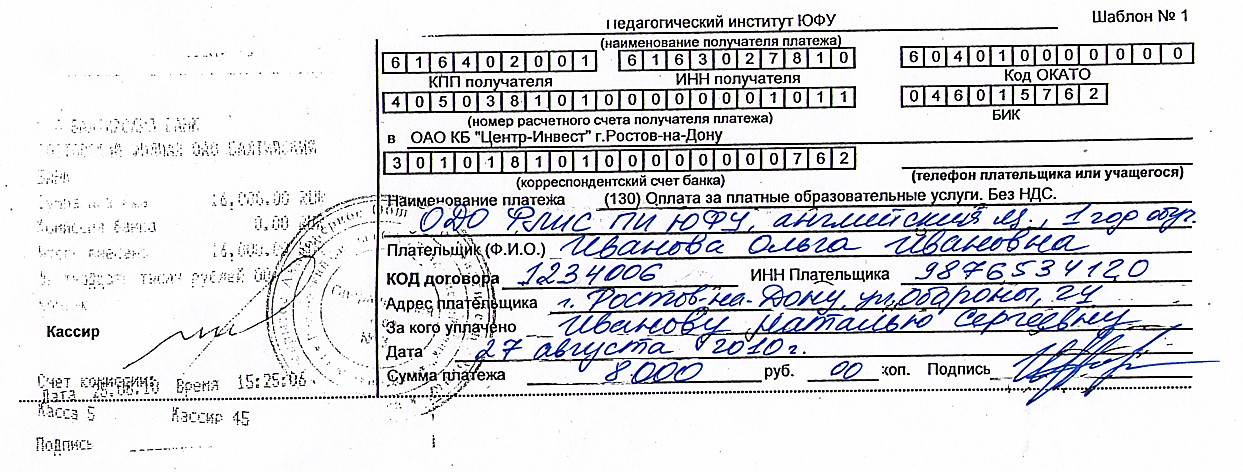 Педагогический институт ЮФУ
Шаблон № 1
(наименование получателя платежа)
616402001 6163027810 60401000000
КПП получателя ИНН получателя Код ОКАТО
40503810100000001011 046015762
(номер расчетного счета получателя платежа) БИК
в ОАО КБ "Центр-Инвест" г.Ростов-на-Дону
30101810100000000762
(корреспондентский счет банка) (телефон плательщика или учащегося)
Наименование платежа (130) Оплата за платные образовательные услуги. Без НДС.
ОДО ФЛИС ПИ ЮФУ, английский яз., 1 год обуч.
Плательщик (Ф.И.О.) Иванова Ольга Ивановна
КОД договора 1234006 ИНН Плательщика 9876534120
Адрес плательщика г. Ростов-на-Дону, ул. Обороны, 24
За кого уплачено Иванову Наталью Сергеевну
Дата 27 августа 2010 г.
Сумма платежа 8000 руб. 00 коп. Подпись
БАНК
ОАО
16,000.00 RUR
Комиссия банка 0.00 RUR
16,000.00
тысяч рублей 00
Кассир
Счет комиссии:
Дата 28.08.10 Время 15:25:06
Касса 5 Кассир 45
Подпись